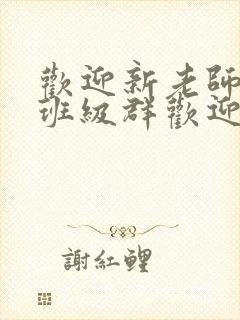 歡迎新老師
班級群歡迎
謝紅鯉